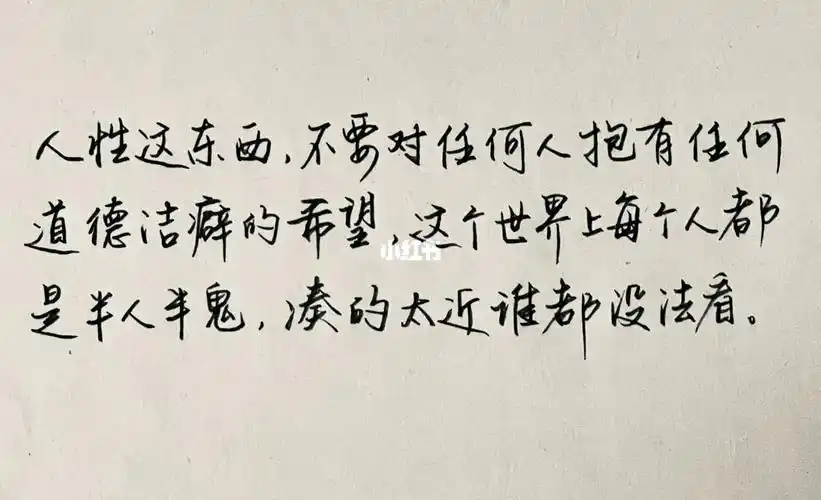 人性这东西,不要对任何人抱有任何
道德洁癖的希望,这个世界上每个人都
小红书
是半人半鬼,凑的太近谁都没法看。